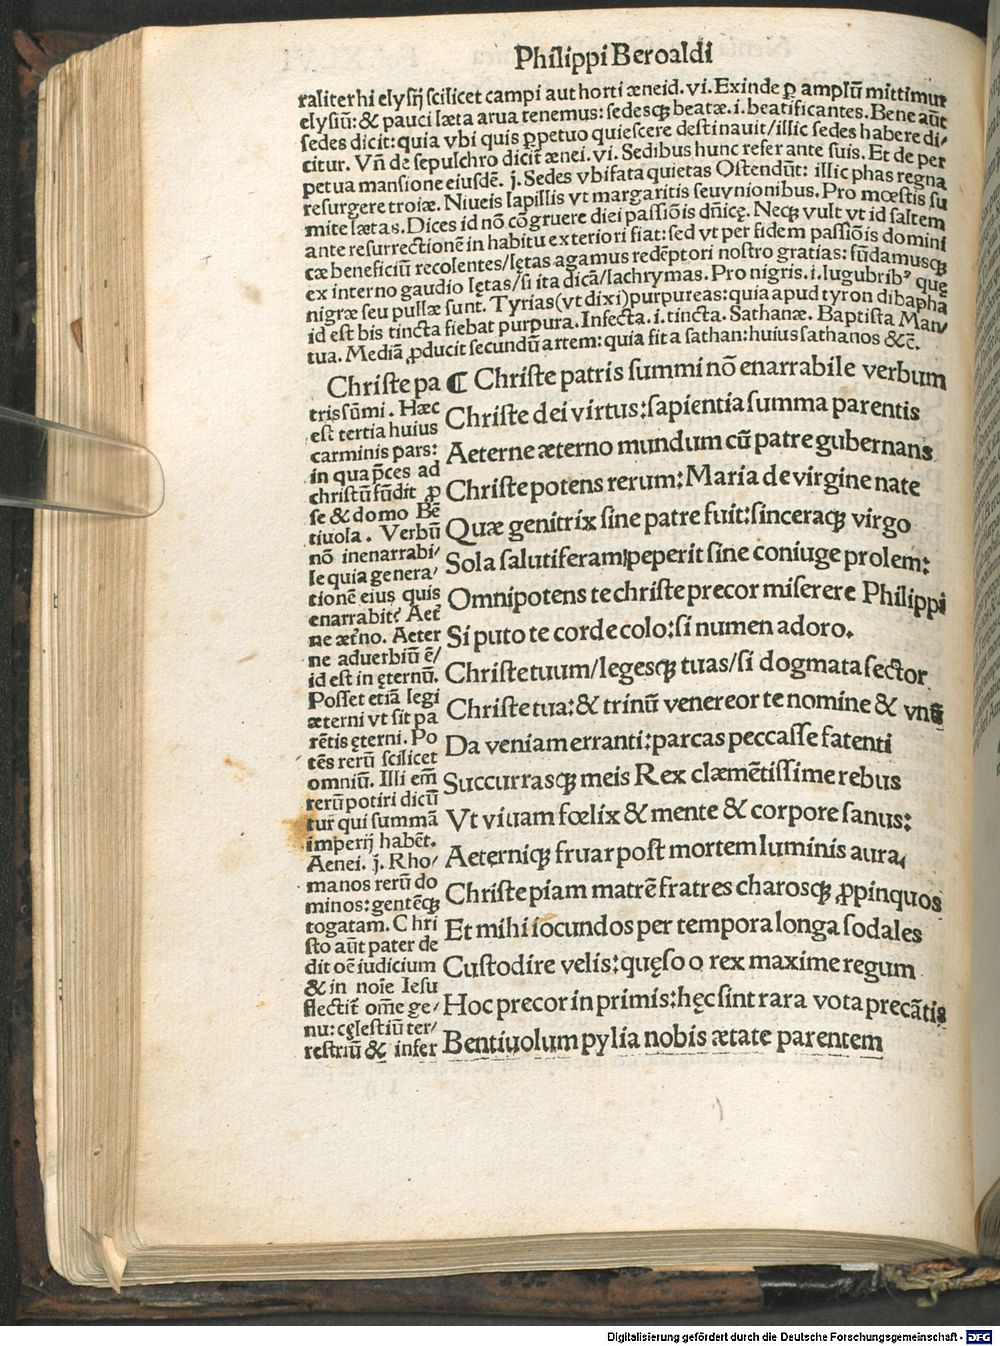 Philippi Beroaldi
raliter hi elysij scilicet campi aut horti æneid. vi. Exinde ꝑ amplū mittimur
elysiū: & pauci læta arua tenemus: sedesqꝫ beatæ. i. beatificantes. Bene aūt
sedes dicit: quia vbi quis ꝑpetuo quiescere destinauit/illic sedes habere di/
citur. Vñ de sepulchro dicit ænei. vi. Sedibus hunc refer ante suis. Et de per
petua mansione eiusdē. j. Sedes vbi fata quietas Ostendūt: illic phas regna
resurgere troiæ. Niueis lapillis vt margaritis seu vnionibus. Pro mœstis su
mite lætas. Dices id nō cōgruere diei passiōis dñicę. Neqꝫ vult vt id saltem
ante resurrectionē in habitu exteriori fiat: sed vt per fidem passiōis domini
cæ beneficiū recolentes/lętas agamus redēptori nostro gratias: fūdamusqꝫ
ex interno gaudio lętas/si ita dicā/lachrymas. Pro nigris. i. lugubribꝰ quę
nigræ seu pullæ sunt. Tyrias (vt dixi) purpureas: quia apud tyron dibapha
id est bis tincta fiebat purpura. Infecta. i. tincta. Sathanæ. Baptista Man/
tua. Mediā ꝓducit secundū artem: quia fit a sathan: huius sathanos &c̄.
Christe pa
tris sūmi. Hæc
est tertia huius
carminis pars:
in qua p̄ces ad
christū fūdit ꝓ
se & domo Bē
tiuola. Verbū
nō inenarrabi/
le quia genera/
tionē eius quis
enarrabit? Aet̄
ne æt̄no. Aeter
ne aduerbiū ē/
id est in ęternū.
Posset etiā legi
æterni vt sit pa
rētis ęterni. Po
tēs rerū scilicet
omniū. Illi em̄
rerū potiri dicū
tur qui summā
imperij habēt.
Aenei. j. Rho/
manos rerū do
minos: gentēqꝫ
togatam. Chri
sto aūt pater de
dit oē iudicium
& in noīe Iesu
flectit̄ om̄e ge/
nu: cęlestiū ter/
restriū & infer
¶ Christe patris summi nō enarrabile verbum
Christe dei virtus: sapientia summa parentis
Aeterne æterno mundum cū patre gubernans
Christe potens rerum: Maria de virgine nate
Quæ genitrix sine patre fuit: sinceraqꝫ virgo
Sola salutiferam peperit sine coniuge prolem:
Omnipotens te christe precor miserere Philippi
Si puto te corde colo: si numen adoro.
Christe tuum/legesqꝫ tuas/si dogmata sector
Christe tua: & trinū venereor te nomine & vnū
Da veniam erranti: parcas peccasse fatenti
Succurrasqꝫ meis Rex clæmētissime rebus
Vt viuam fœlix & mente & corpore sanus:
Aeterniqꝫ fruar post mortem luminis aura
Christe piam matrē fratres charosqꝫ ꝓpinquos
Et mihi iocundos per tempora longa sodales
Custodire velis: quęso o rex maxime regum
Hoc precor in primis: hęc sint rara vota precātis
Bentiuolum pylia nobis ætate parentem
Digitalisierung gefördert durch die Deutsche Forschungsgemeinschaft - DFG